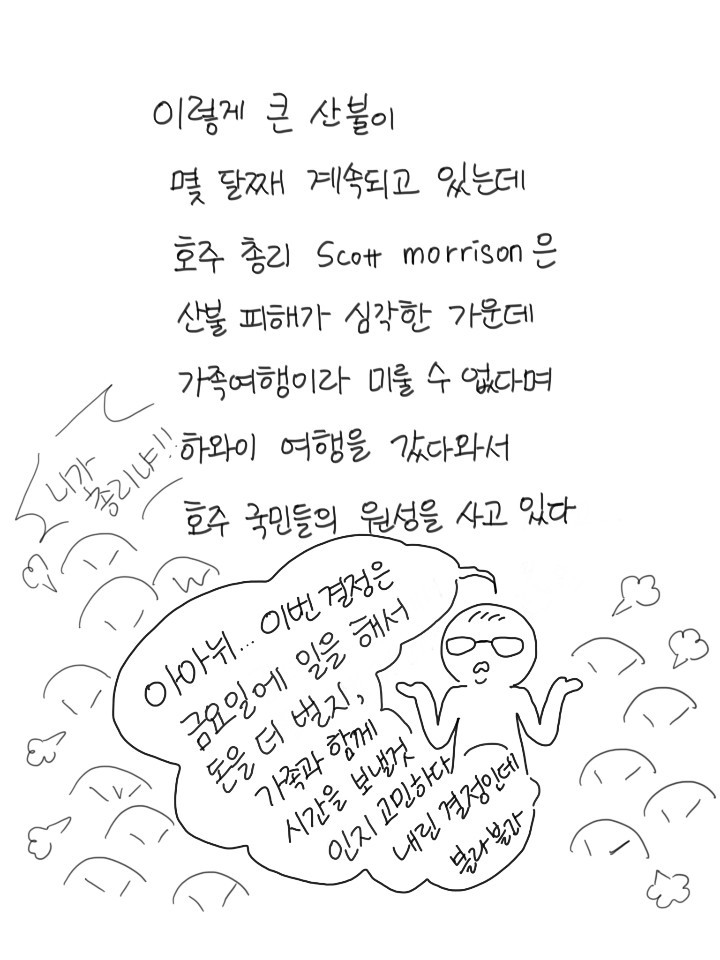 이렇게 큰 산불이
몇 달째 계속되고 있는데
호주 총리 Scott morrison은
산불 피해가 심각한 가운데
가족여행이라 미룰 수 없다며
하와이 여행을 갔다와서
호주 국민들의 원성을 사고 있다
니가
총리냐!!
아아뉘... 이번 결정은
금요일에 일을 해서
돈을 더 벌지,
가족과 함께
시간을 보낼것
인지 고민하다
내린 결정인데
블라블라